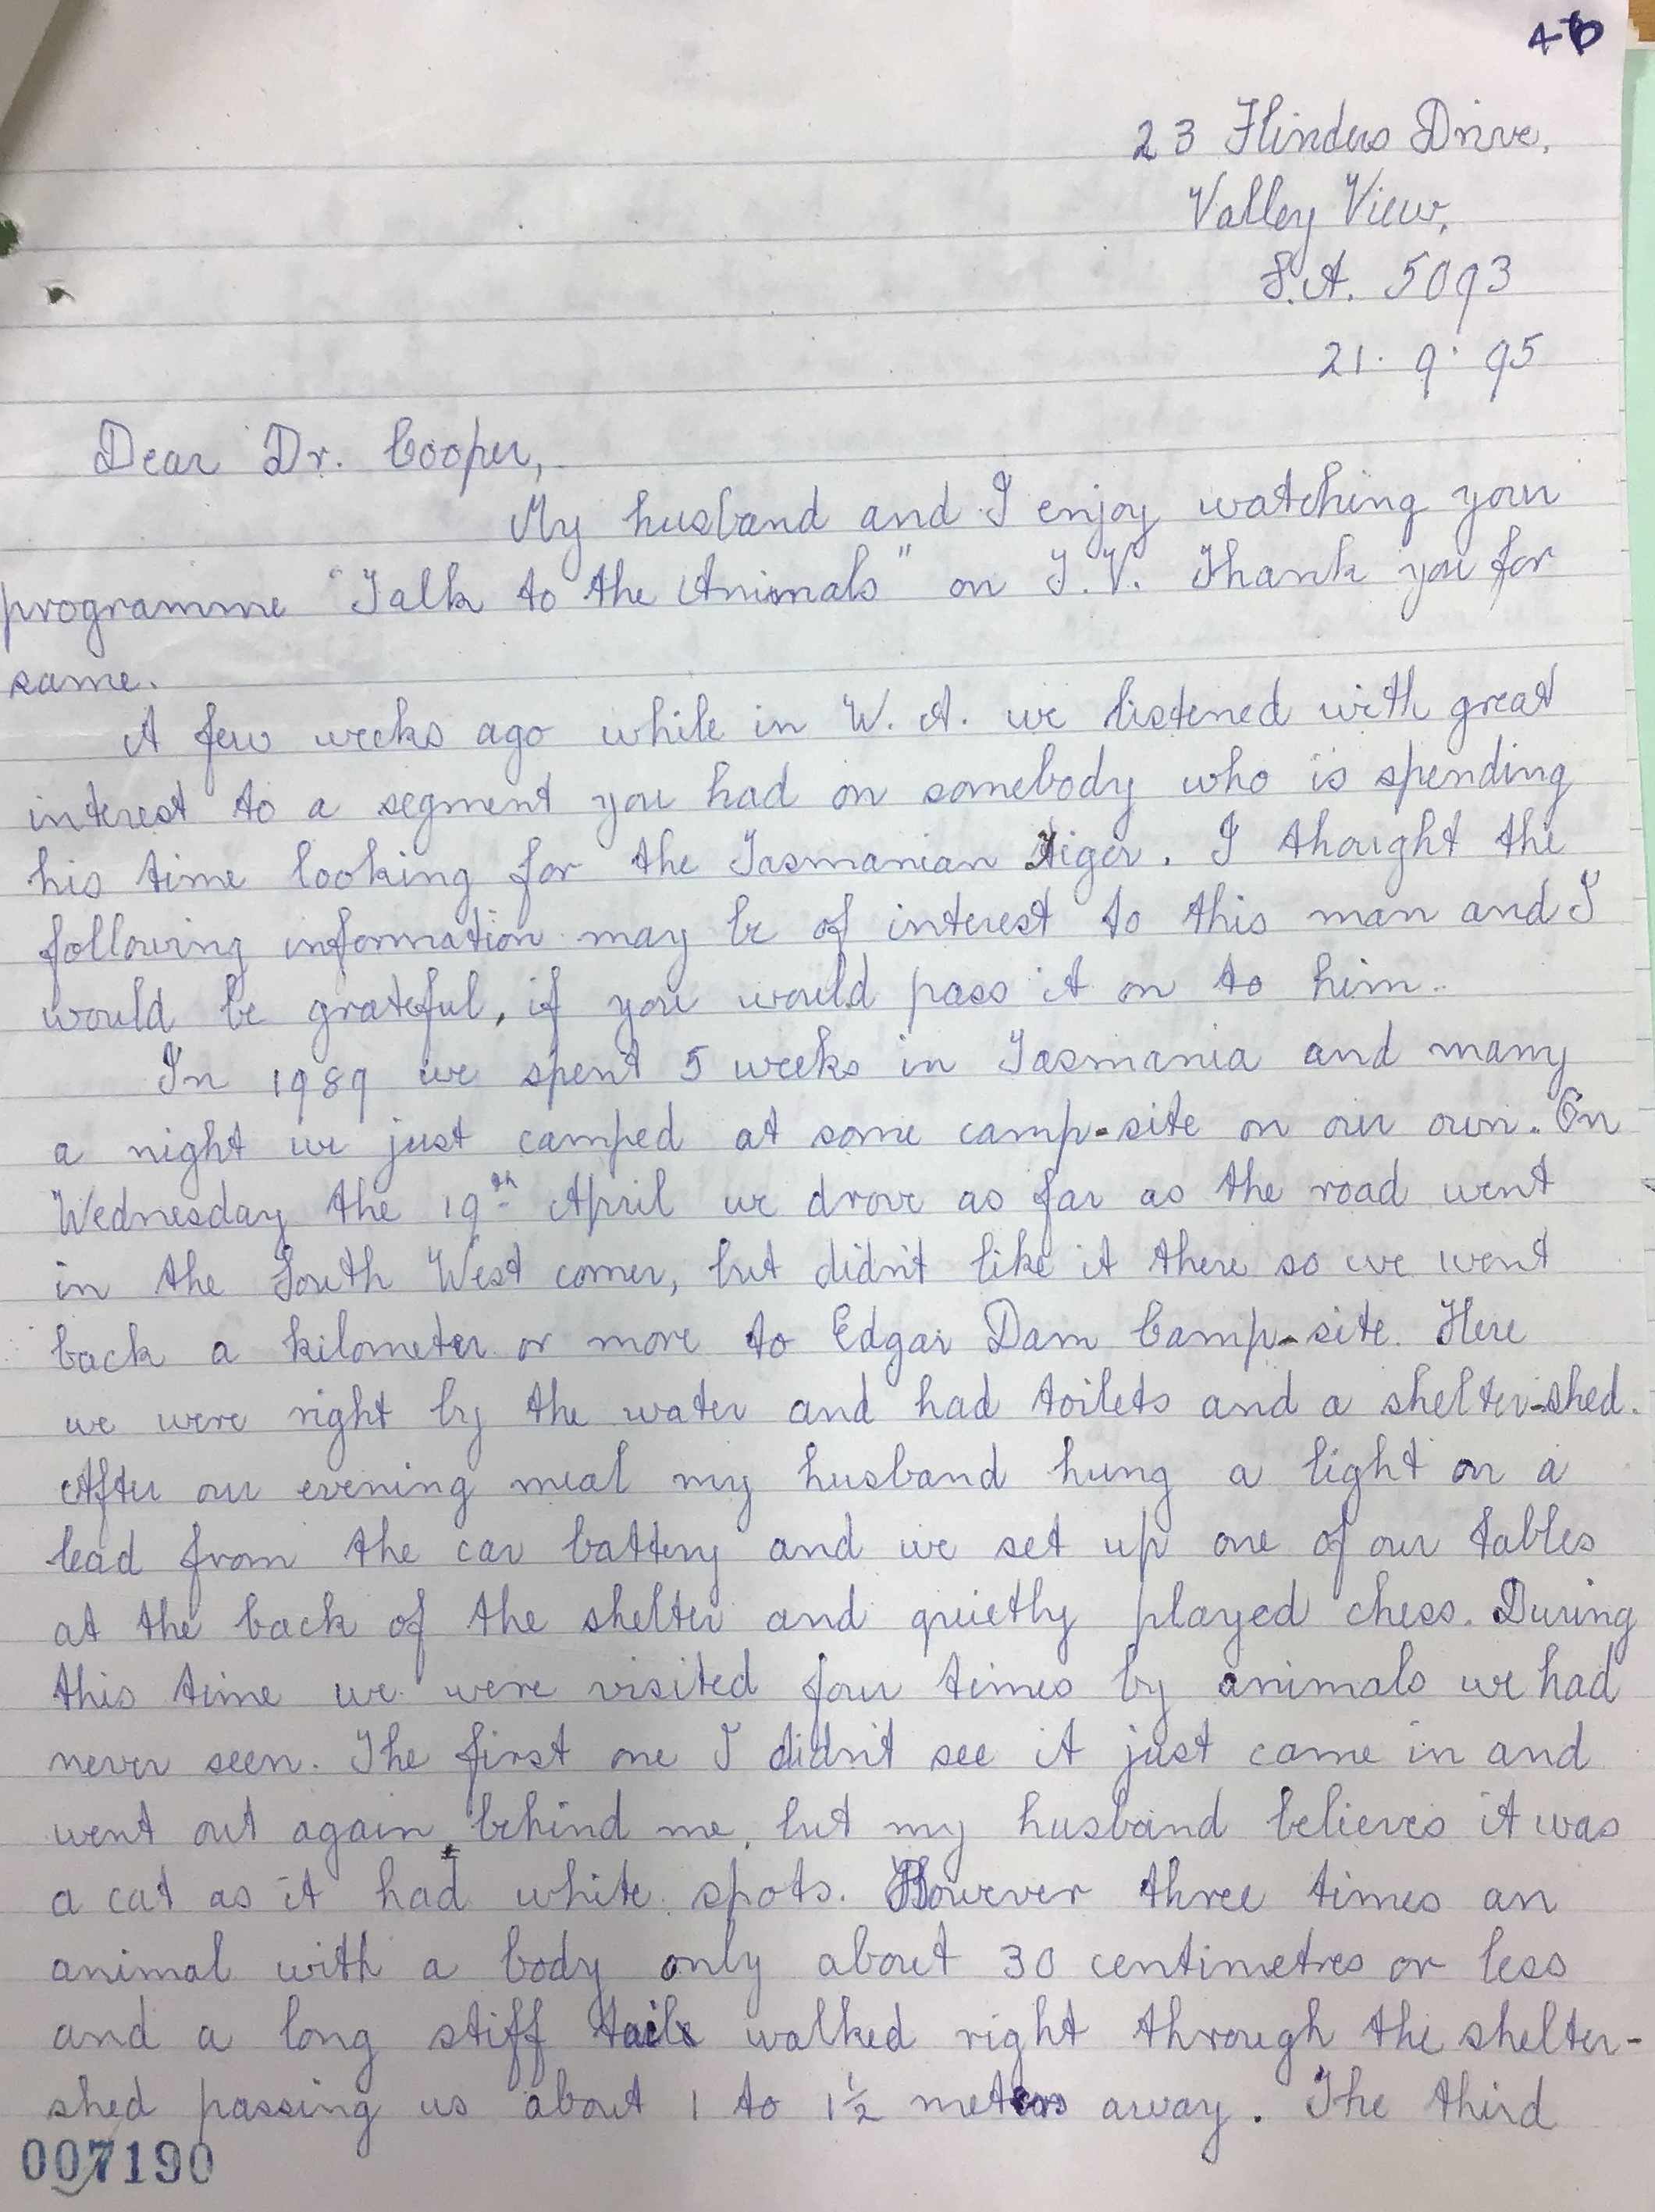 46
23 Flinders Drive,
Valley View,
S.A. 5093
21. 9. 95
Dear Dr. Cooper,
My husband and I enjoy watching your
programme "Talk to the Animals" on T.V. Thank you for
same.
A few weeks ago while in W.A. we listened with great
interest to a segment you had on somebody who is spending
his time looking for the Tasmanian Tiger. I thought the
following information may be of interest to this man and I
would be grateful, if you would pass it on to him.
In 1989 we spent 5 weeks in Tasmania and many
a night we just camped at some camp-site on our own. On
Wednesday the 19th April we drove as far as the road went
in the South West corner, but didn't like it there so we went
back a kilometer or more to Edgar Dam Camp-site. Here
we were right by the water and had toilets and a shelter-shed.
After our evening meal my husband hung a light on a
lead from the car battery and we set up one of our tables
at the back of the shelter and quietly played chess. During
this time we were visited four times by animals we had
never seen. The first one I didn't see it just came in and
went out again behind me, but my husband believes it was
a cat as it had white spots. However three times an
animal with a body only about 30 centimetres or less
and a long stiff tail walked right through the shelter-
shed passing us about 1 to 1½ meters away. The third
007190